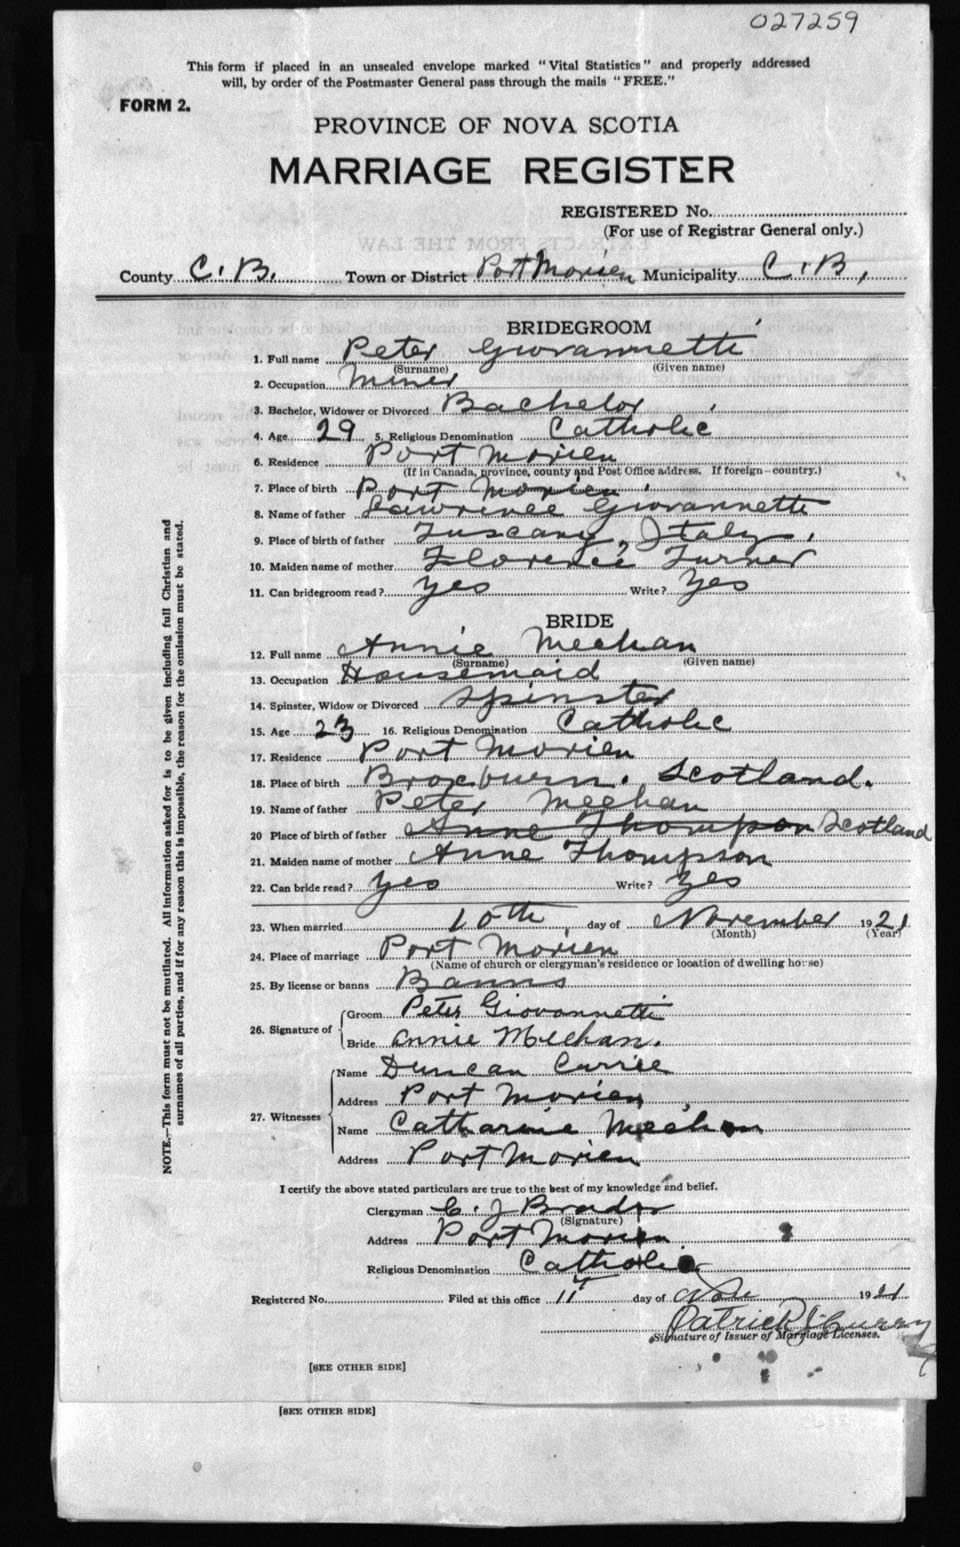 027259
This form if placed in an unsealed envelope marked "Vital Statistics" and properly addressed
will, by order of the Postmaster General pass through the mails "FREE."
FORM 2.
PROVINCE OF NOVA SCOTIA
MARRIAGE REGISTER
REGISTERED No.
(For use of Registrar General only.)
County C. B. Town or District Port Morien Municipality C. B.,
BRIDEGROOM
1. Full name Peter Giovannetti
(Surname) (Given name)
2. Occupation Miner
3. Bachelor, Widower or Divorced Bachelor
4. Age 29 5. Religious Denomination Catholic
6. Residence Port Morien
(If in Canada, province, county and Post Office address. If foreign—country.)
7. Place of birth Port Morien
8. Name of father Lawrence Giovannetti
9. Place of birth of father Tuscany, Italy.
10. Maiden name of mother Florence Turner
11. Can bridegroom read? Yes Write? Yes
BRIDE
12. Full name Annie Meehan
(Surname) (Given name)
13. Occupation Housemaid
14. Spinster, Widow or Divorced Spinster
15. Age 23 16. Religious Denomination Catholic
17. Residence Port Morien
18. Place of birth Broxburn. Scotland.
19. Name of father Peter Meehan
20 Place of birth of father Anne Thompson Scotland
21. Maiden name of mother Anne Thompson
22. Can bride read? Yes Write? Yes
23. When married 10th day of November 1921
(Month) (Year)
24. Place of marriage Port Morien
(Name of church or clergyman's residence or location of dwelling house)
25. By license or banns Banns
26. Signature of
Groom Peter Giovannetti
Bride Annie Meehan.
27. Witnesses
Name Duncan Currie
Address Port Morien
Name Catharine Meehan
Address Port Morien
I certify the above stated particulars are true to the best of my knowledge and belief.
Clergyman C. J.
(Signature)
Address Port Morien
Religious Denomination Catholic
Registered No. Filed at this office 11 day of Nov 1921
Patrick
Signature of Issuer of Marriage Licenses.
[SEE OTHER SIDE]
[SEE OTHER SIDE]
NOTE.—This form must not be mutilated. All information asked for is to be given including full Christian and
surnames of all parties, and if for any reason this is impossible, the reason for the omission must be stated.